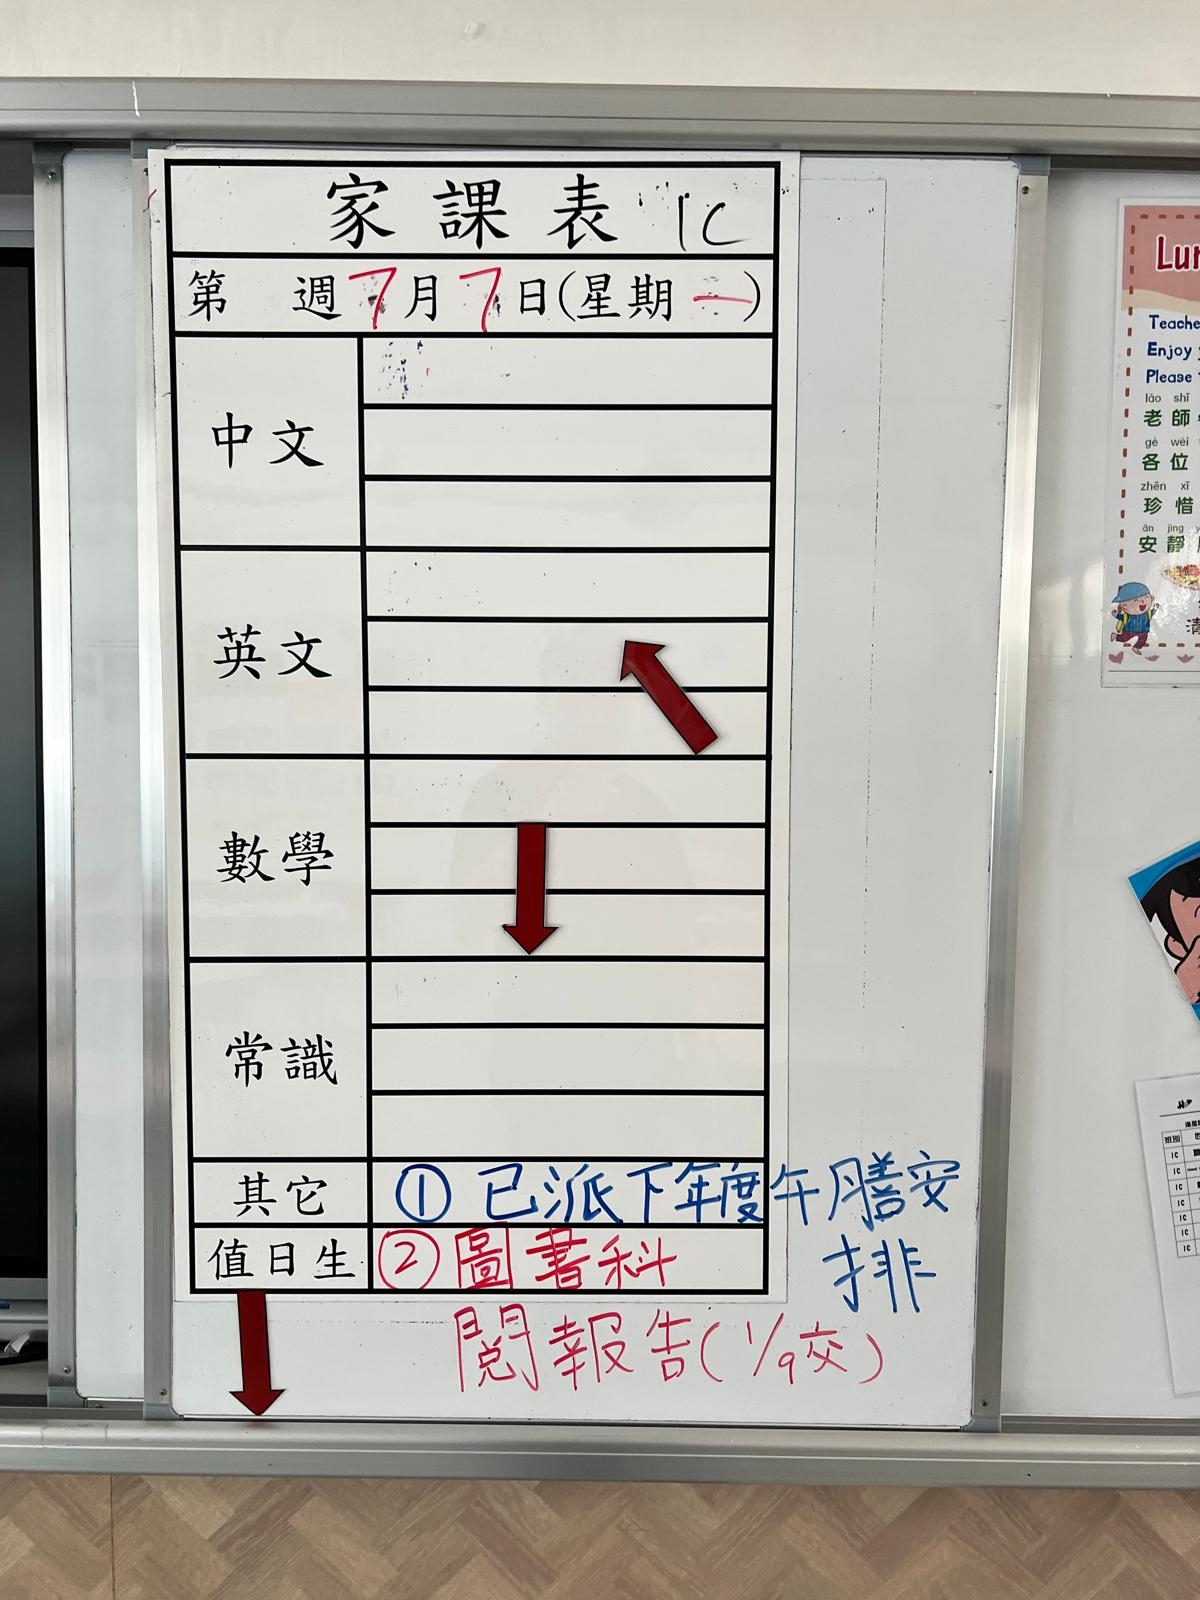 家課表 1C
第 週7月7日(星期一)
中文
英文
數學
常識
其它 ① 已派下年度午膳安
排
值日生 ② 圖書科
閱報告(1/9交)
Lun
Teache
Enjoy
Please
lǎo shī
老師
gè wèi
各位
zhēn xī
珍惜
ān jìng
安靜
清
班別
1C
1C
1C
1C
1C
1C
1C